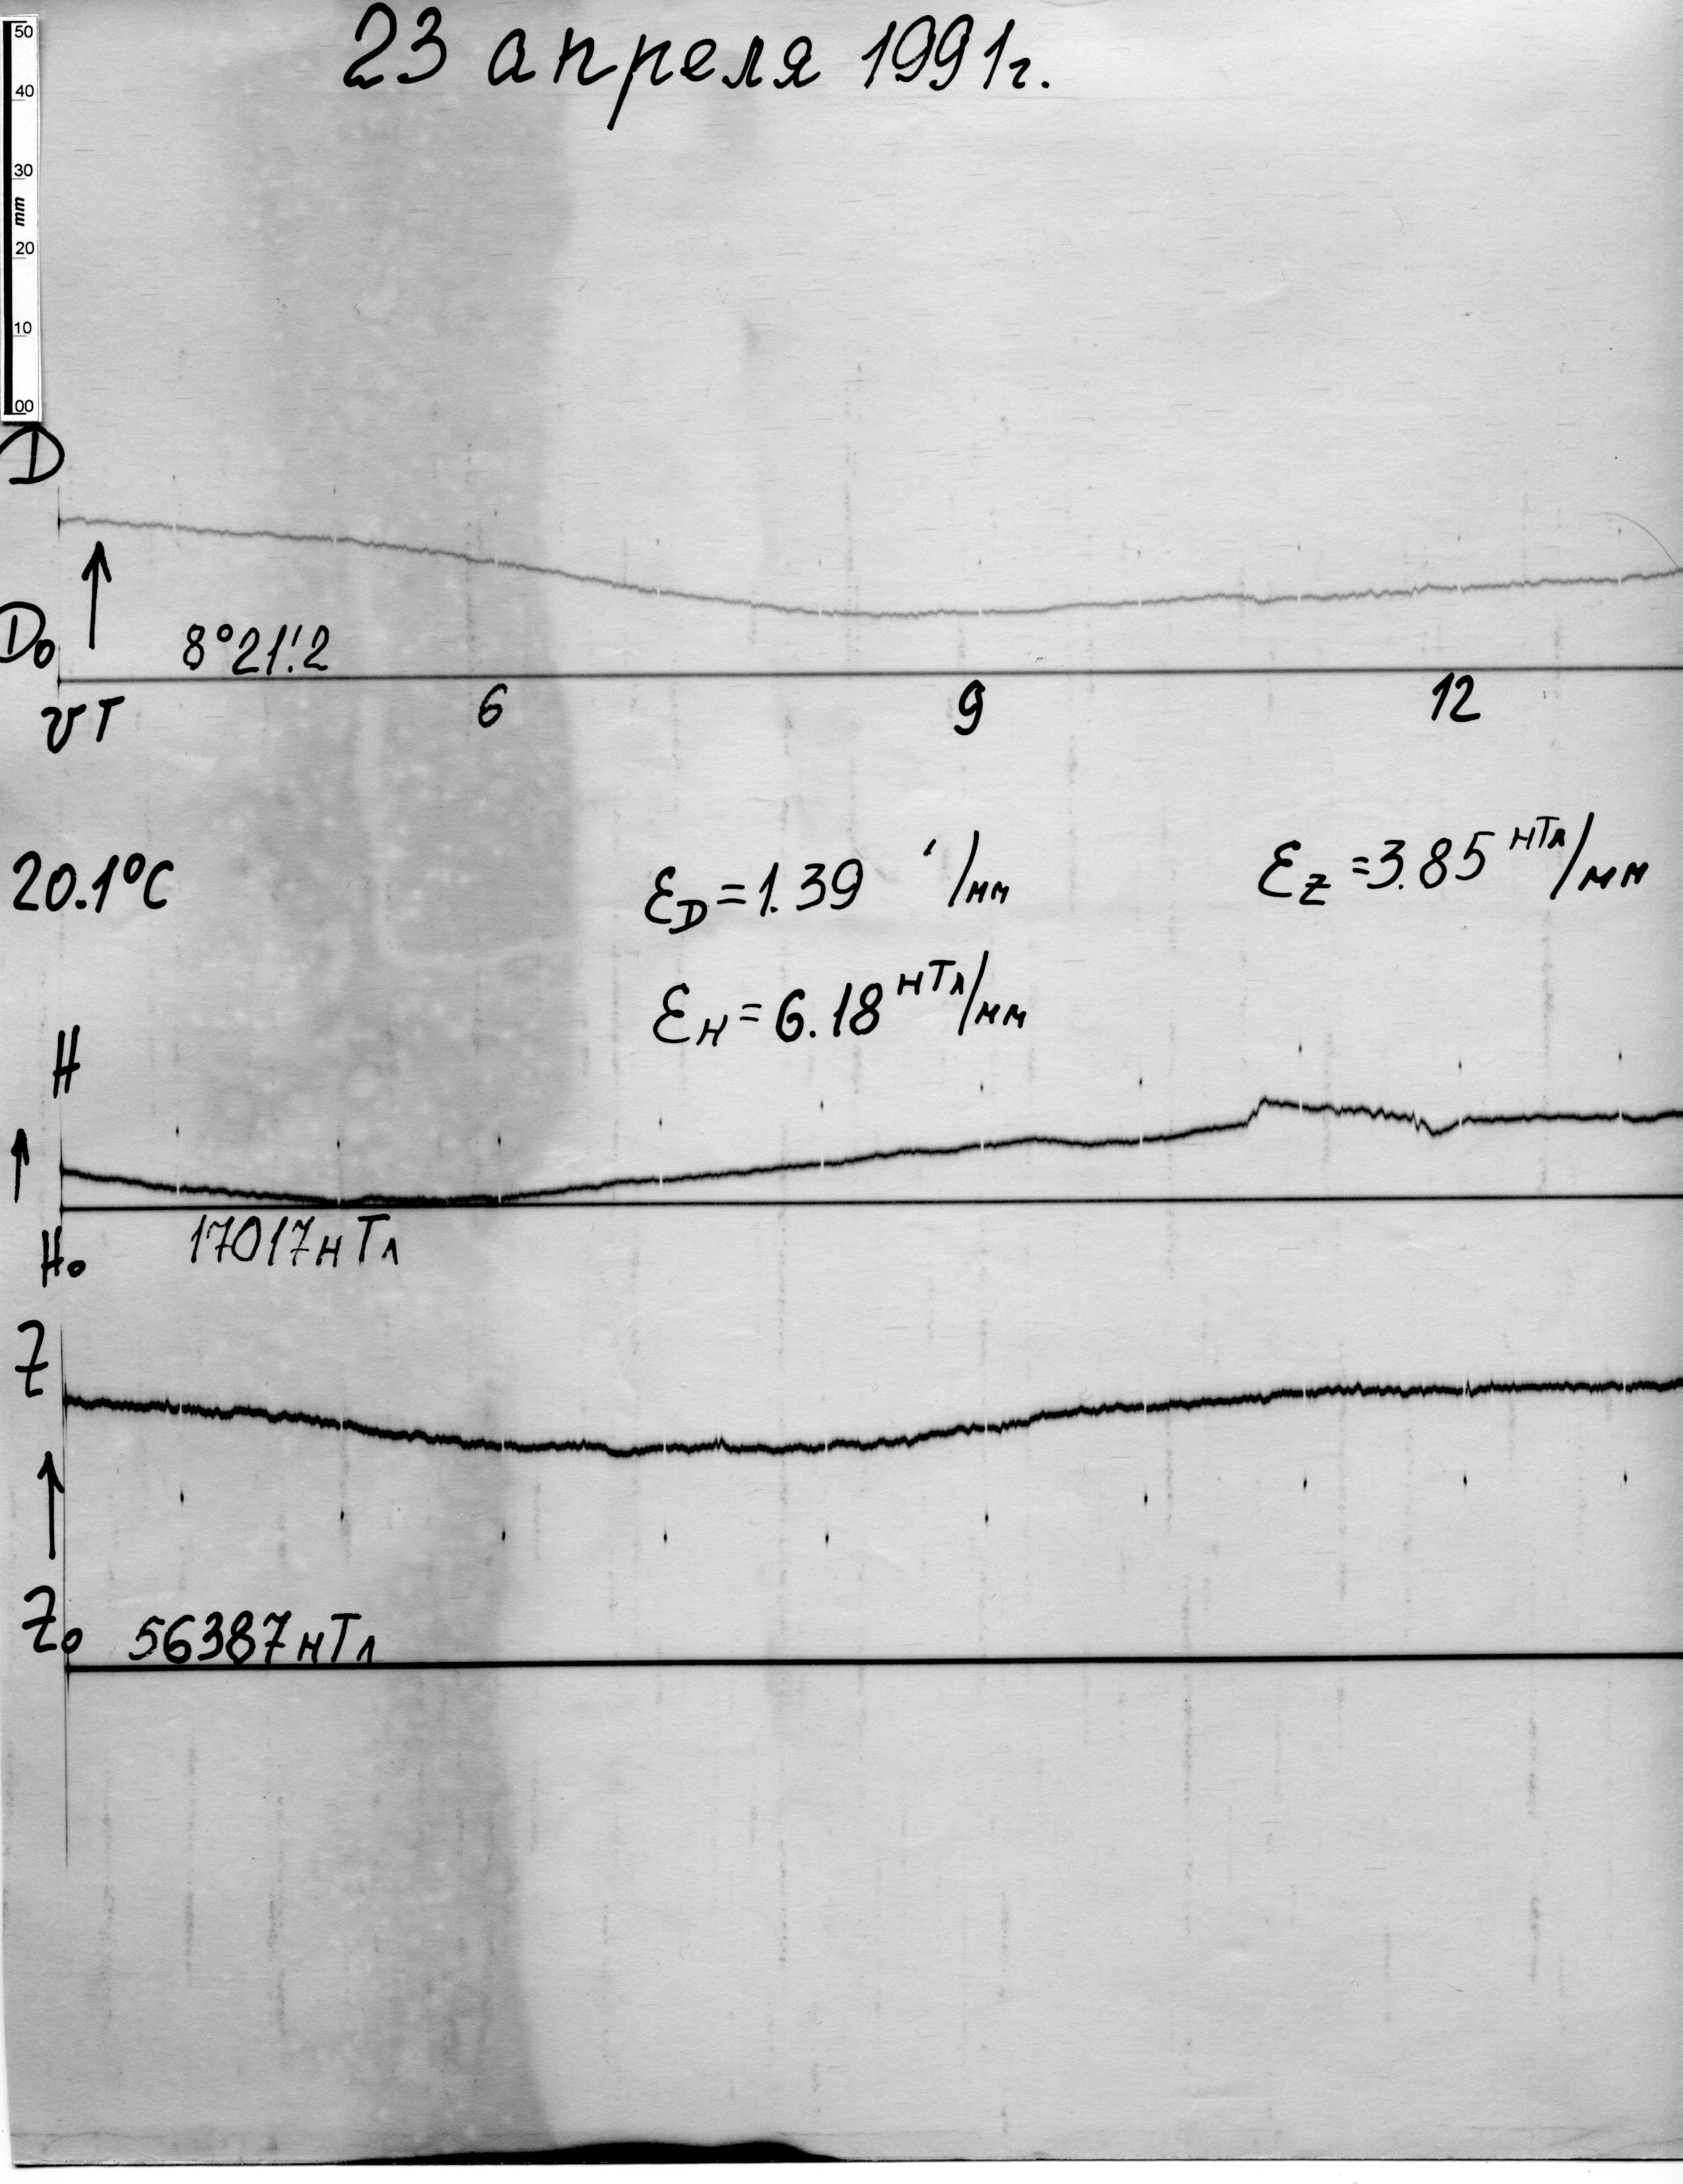 50
40
30
mm
20
10
00
23 апреля 1991г.
D
D₀ 8°21!2
UT 6 9 12
20.1°C ℰD=1.39 ′/мм ℰZ=3.85 нТл/мм
ℰH=6.18 нТл/мм
H
H₀ 17017нТл
Z
Z₀ 56387нТл